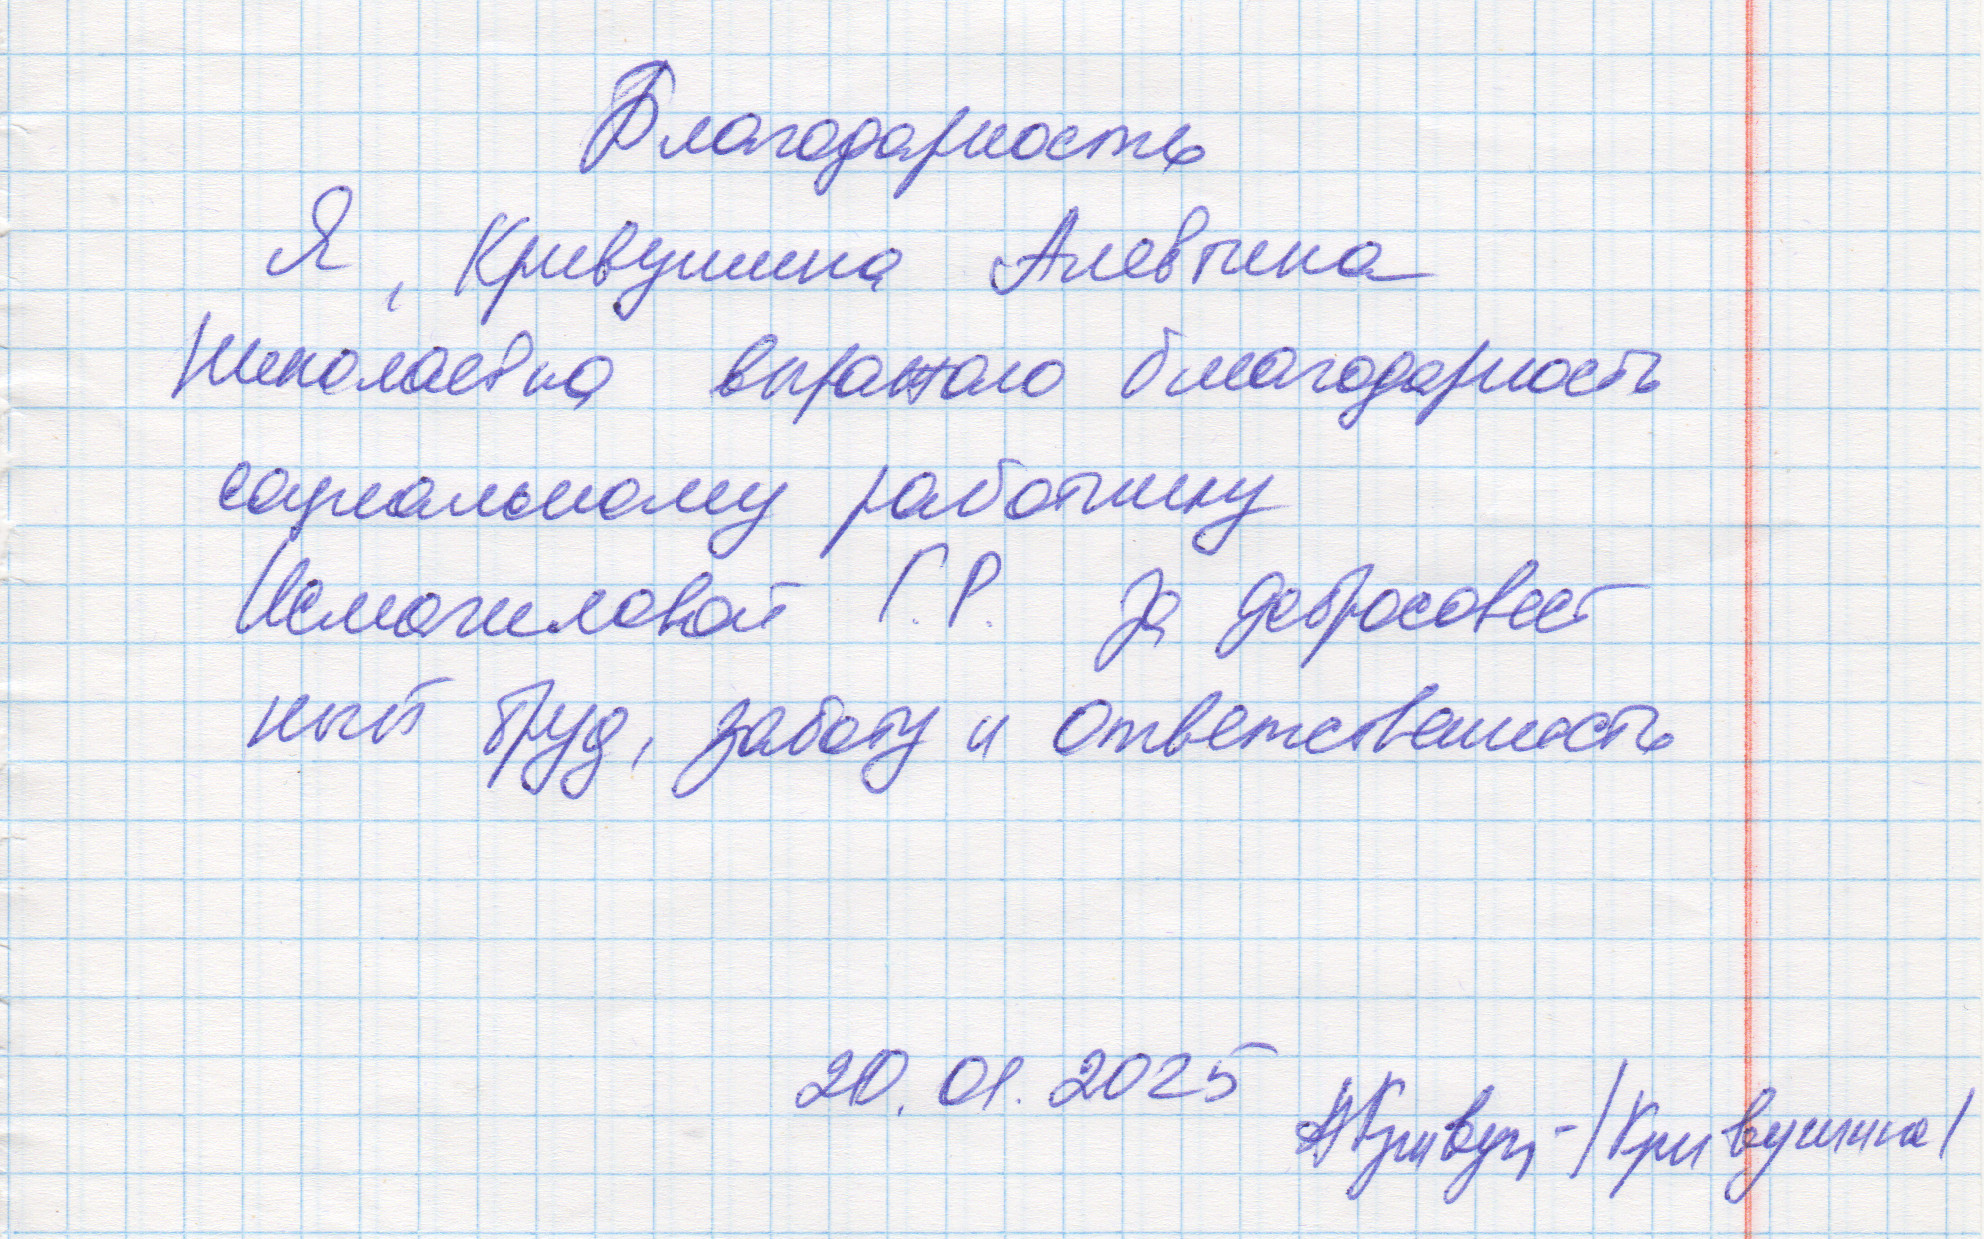 Благодарность
Я, Кривушина Алевтина
Николаевна выражаю благодарность
социальному работнику
Исмагиловой Г.Р. за добросовест
ный труд, заботу и ответственность
20.01.2025
АКривуш- /Кривушина/